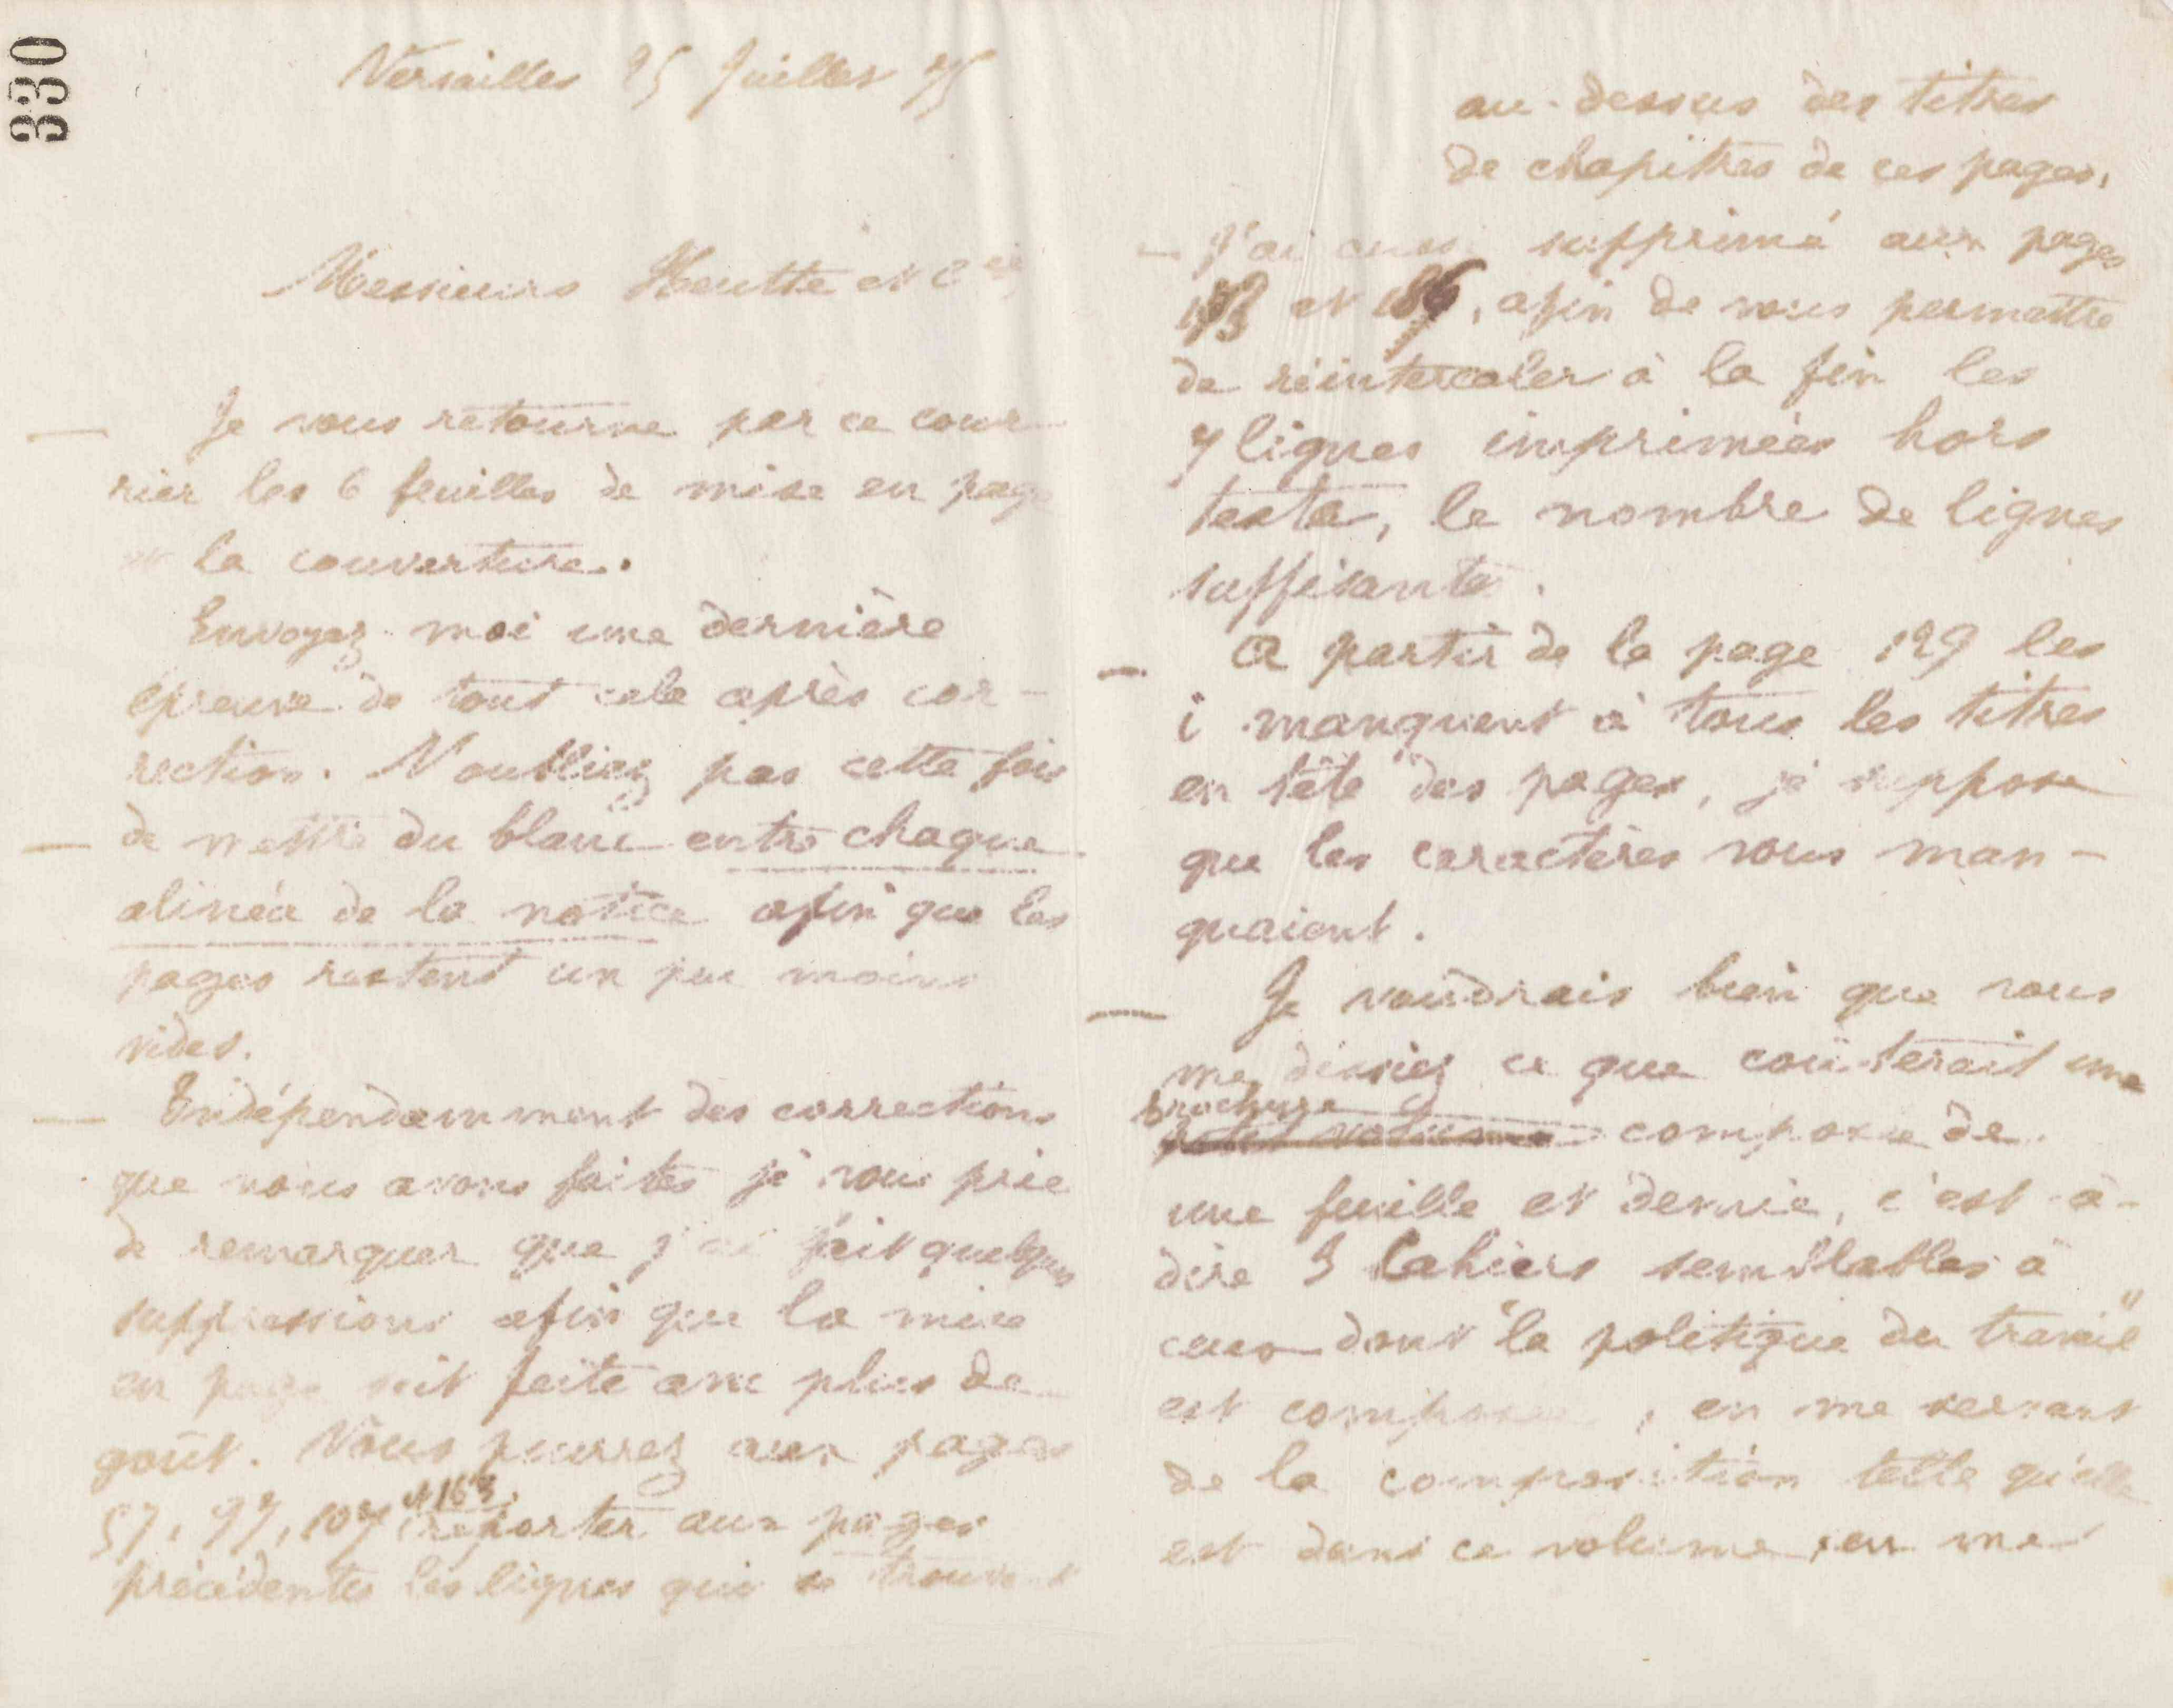 330
Versailles 25 Juillet 75
Messieurs Heutte et Cie
Je vous retourne par ce cour
rier les 6 feuilles de mise en page
et la couverture.
Envoyez-moi une dernière
épreuve de tout cela après cor-
rection. N'oubliez pas cette fois
de mettre du blanc entre chaque
alinéa de la notice afin que les
pages restent un peu moins
vides.
Indépendamment des corrections
que nous avons faites je vous prie
de remarquer que j'ai fait quelques
suppressions afin que la mise
en page soit faite avec plus de
goût. Vous pourrez aux pages
57, 97, 107 et 163, reporter aux pages
précédentes les lignes qui se trouvent
au-dessus des titres
de chapitres de ces pages.
- J'ai aussi supprimé aux pages
et, afin de vous permettre
de réintercaler à la fin les
7 lignes imprimées hors
texte, le nombre de lignes
suffisante.
- A partir de la page 129 les
i manquent à tous les titres
en tête des pages, je suppose
que les caractères vous man-
quaient.
- Je voudrais bien que vous
me disiez ce que coûterait une
brochure composée de
une feuille et demie, c'est-à-
dire 3 Cahiers semblables à
ceux dont "la politique du travail"
est composée, en me servant
de la composition telle qu'elle
est dans ce volume, en me